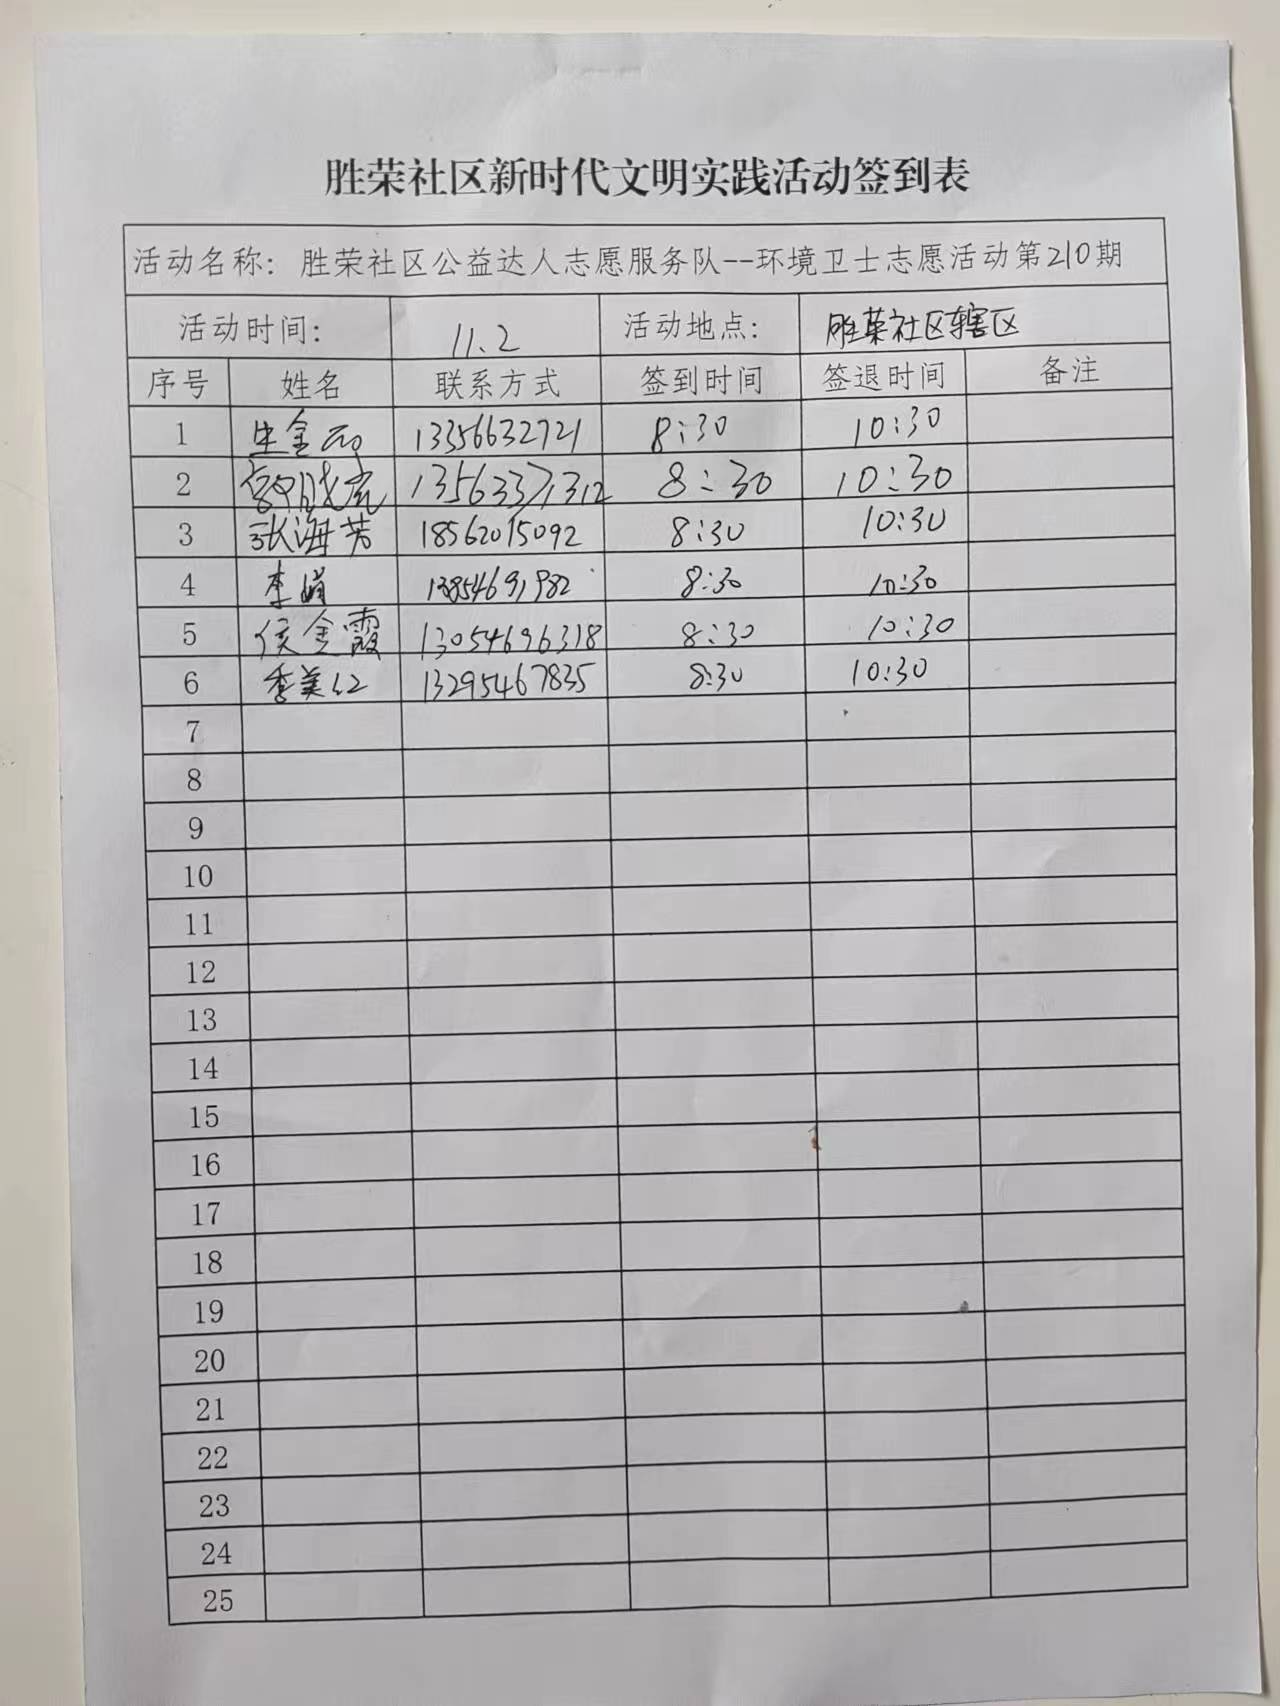 胜荣社区新时代文明实践活动签到表
活动名称：胜荣社区公益达人志愿服务队--环境卫士志愿活动第210期
活动时间： 11.2 活动地点： 胜荣社区辖区
序号 姓名 联系方式 签到时间 签退时间 备注
1 13356632721 8:30 10:30
2 8:30 10:30
3 张海芳 18562015092 8:30 10:30
4 李娟 13854691982 8:30 10:30
5 侯金霞 13054696318 8:30 10:30
6 季美红 13295467835 8:30 10:30
7
8
9
10
11
12
13
14
15
16
17
18
19
20
21
22
23
24
25